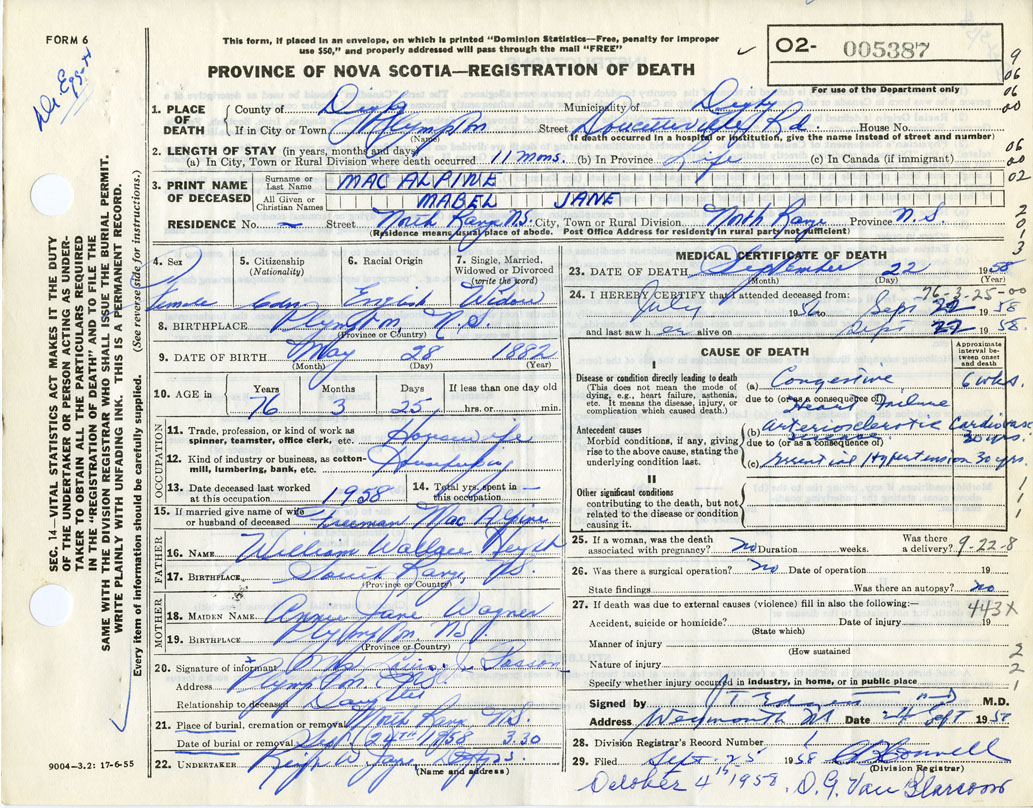 FORM 6
This form, if placed in an envelope, on which is printed "Dominion Statistics—Free, penalty for improper
use $50," and properly addressed will pass through the mail "FREE"
PROVINCE OF NOVA SCOTIA—REGISTRATION OF DEATH
O2- 005387
For use of the Department only
1. PLACE OF DEATH County of Digby Municipality of Digby
If in City or Town Plympton Street Doucetteville Rd House No.
(Name) (If death occurred in a hospital or institution, give the name instead of street and number)
2. LENGTH OF STAY (in years, months and days)
(a) In City, Town or Rural Division where death occurred 11 mons. (b) In Province Life (c) In Canada (if immigrant)
3. PRINT NAME OF DECEASED Surname or Last Name MAC ALPINE
All Given or Christian Names MABEL JANE
RESIDENCE No. — Street North Range N.S. City, Town or Rural Division North Range Province N.S.
(Residence means usual place of abode. Post Office Address for residents in rural parts not sufficient)
4. Sex Female
5. Citizenship (Nationality) Cdn
6. Racial Origin English
7. Single, Married, Widowed or Divorced (write the word) Widow
8. BIRTHPLACE Plympton, N.S.
(Province or Country)
9. DATE OF BIRTH May 28 1882
(Month) (Day) (Year)
10. AGE in Years 76 Months 3 Days 25 If less than one day old hrs. or min.
OCCUPATION
11. Trade, profession, or kind of work as spinner, teamster, office clerk, etc. Housewife
12. Kind of industry or business, as cotton-mill, lumbering, bank, etc. Housekeeping
13. Date deceased last worked at this occupation 1958 14. Total yrs. spent in this occupation —
15. If married give name of wife or husband of deceased Freeman Mac Alpine
FATHER
16. NAME William Wallace
17. BIRTHPLACE South Range, N.S.
(Province or Country)
MOTHER
18. MAIDEN NAME Annie Jane Wagner
19. BIRTHPLACE Plympton, N.S.
(Province or Country)
20. Signature of informant Mrs
Address Plympton N.S.
Relationship to deceased Daughter
21. Place of burial, cremation or removal North Range N.S.
Date of burial or removal Sept 24th 1958 3.30
22. UNDERTAKER
(Name and address)
9004—3.2: 17-6-55
SEC. 14—VITAL STATISTICS ACT MAKES IT THE DUTY
OF THE UNDERTAKER OR PERSON ACTING AS UNDER-
TAKER TO OBTAIN ALL THE PARTICULARS REQUIRED
IN THE "REGISTRATION OF DEATH" AND TO FILE THE
SAME WITH THE DIVISION REGISTRAR WHO SHALL ISSUE THE BURIAL PERMIT.
WRITE PLAINLY WITH UNFADING INK. THIS IS A PERMANENT RECORD.
Every item of information should be carefully supplied. (See reverse side for instructions.)
MEDICAL CERTIFICATE OF DEATH
23. DATE OF DEATH September 22 1958
(Month) (Day) (Year)
76-3-25-00
24. I HEREBY CERTIFY that I attended deceased from:
July 1956 to Sept 22 1958
and last saw her alive on Sept 22 1958
CAUSE OF DEATH
Approximate interval between onset and death
I
Disease or condition directly leading to death
(This does not mean the mode of dying, e.g., heart failure, asthenia, etc. It means the disease, injury, or complication which caused death.)
(a) Congestive Heart Failure 6 wks.
due to (or as a consequence of)
Antecedent causes
Morbid conditions, if any, giving rise to the above cause, stating the underlying condition last.
(b) arteriosclerotic Cardiovasc 30 yrs.
due to (or as a consequence of)
(c) Essential Hypertension 30 yrs.
II
Other significant conditions
contributing to the death, but not related to the disease or condition causing it.
25. If a woman, was the death associated with pregnancy? no Duration weeks. Was there a delivery? 9-22-8
26. Was there a surgical operation? no Date of operation 19
State findings Was there an autopsy? no
27. If death was due to external causes (violence) fill in also the following:— 443X
Accident, suicide or homicide? Date of injury 19
(State which)
Manner of injury
(How sustained)
Nature of injury
Specify whether injury occurred in industry, in home, or in public place
Signed by M.D.
Address Weymouth Date 24 Sept 1958
28. Division Registrar's Record Number 1
29. Filed Sept. 25 1958
(Division Registrar)
October 4th 1958. D.G. Van Blarcom
9
06
06
00
06
00
02
2
0
1
3
1
1
1
2
2
1